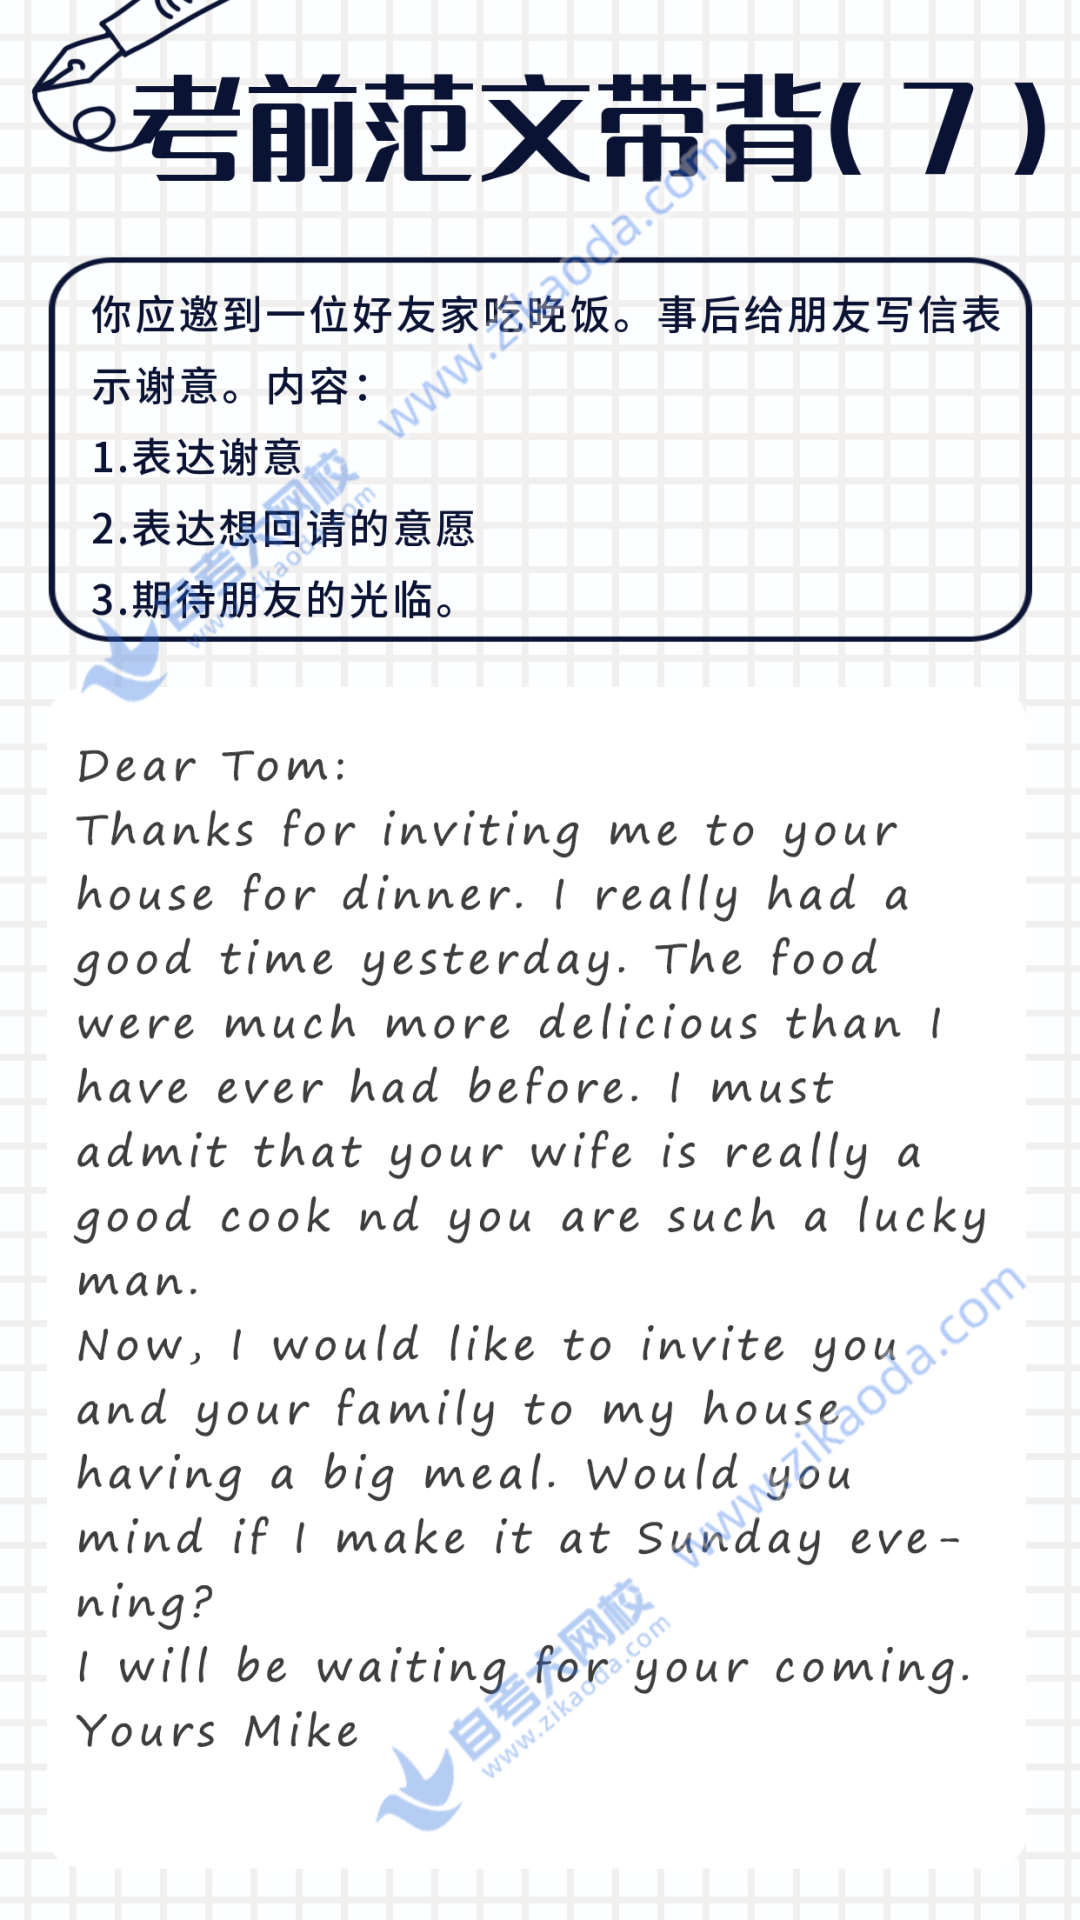 考前范文带背(7)
你应邀到一位好友家吃晚饭。事后给朋友写信表
示谢意。内容：
1.表达谢意
2.表达想回请的意愿
3.期待朋友的光临。
Dear Tom:
Thanks for inviting me to your
house for dinner. I really had a
good time yesterday. The food
were much more delicious than I
have ever had before. I must
admit that your wife is really a
good cook nd you are such a lucky
man.
Now, I would like to invite you
and your family to my house
having a big meal. Would you
mind if I make it at Sunday eve-
ning?
I will be waiting for your coming.
Yours Mike
www.zikaoda.com
自考大网校
www.zikaoda.com
www.zikaoda.com
自考大网校
www.zikaoda.com